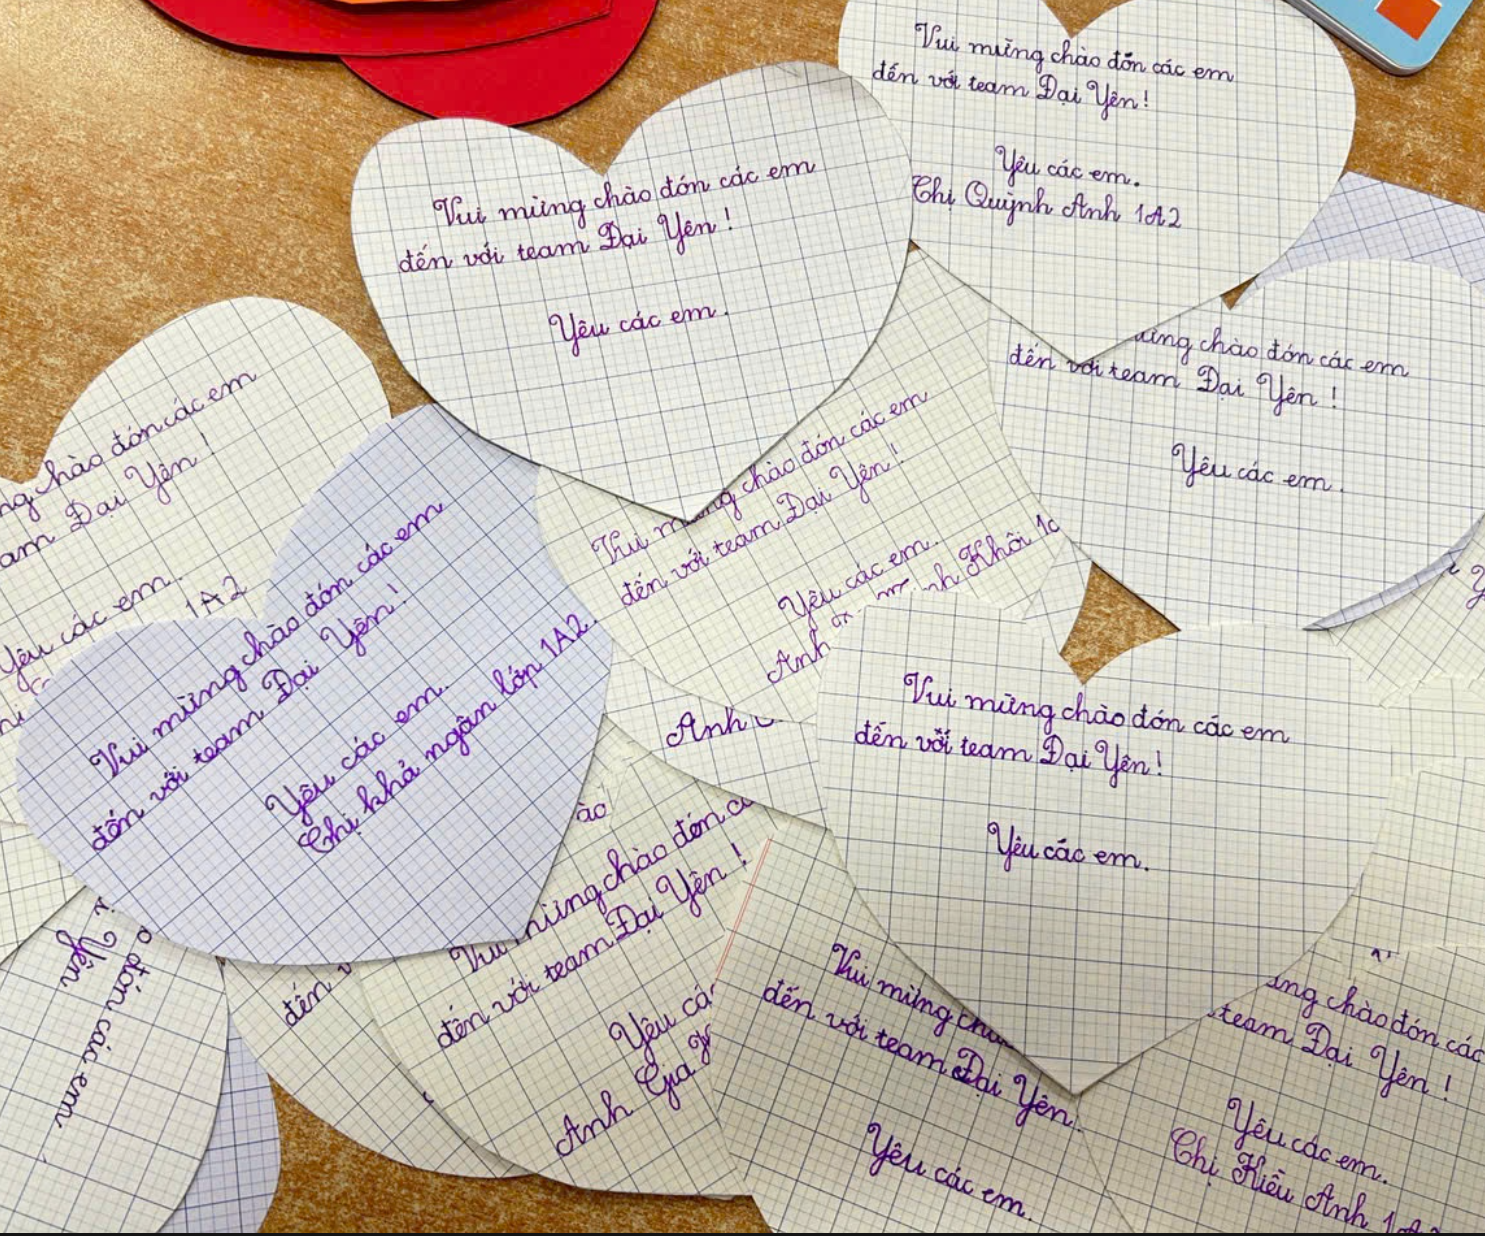 Vui mừng chào đón các em
đến với team Đại Yên!
Yêu các em.
Chị Quỳnh Anh 1A2
Vui mừng chào đón các em
đến với team Đại Yên!
Yêu các em.
chào đón các em
đến với team Đại Yên!
Yêu các em.
chào đón các em
Đại Yên!
Yêu các em.
1A2
Vui mừng chào đón các em
đến với team Đại Yên!
Yêu các em.
Chị khả ngân lớp 1A2.
Vui chào đón các em
đến với team Đại Yên!
Yêu các em.
Anh Khôi
Anh
Vui mừng chào đón các em
đến với team Đại Yên!
Yêu các em.
chào đón
đến với team Đại Yên!
Yêu
Anh Gia
đến
đón các em
Yên
Vui mừng
đến với team Đại Yên
Yêu các em.
chào đón các
team Đại Yên!
Yêu các em.
Chị Kiều Anh